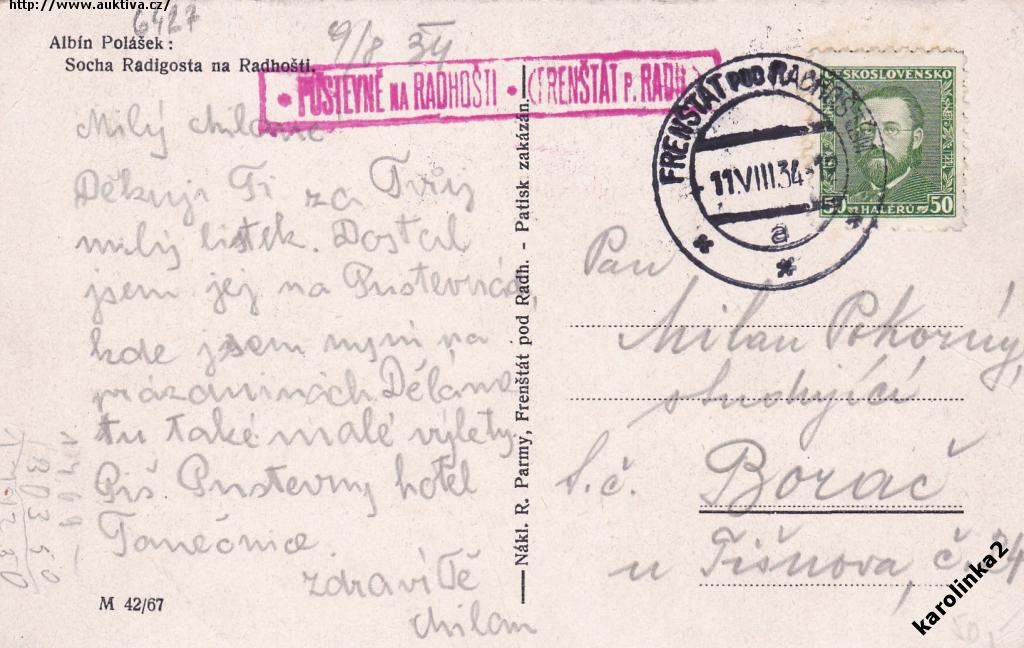 http://www.auktiva.cz/
6427
Albín Polášek:
Socha Radigosta na Radhošti.
9/8 34
• PUSTEVNĚ NA RADHOŠTI • (FRENŠTÁT P. RADH.)
FRENŠTÁT POD RADHOŠTĚM
11.VIII.34
a
ČESKOSLOVENSKO
50 HALÉŘŮ 50
Milý Milane
Děkuji Ti za Tvůj
milý lístek. Dostal
jsem jej na Pustevnách,
kde jsem nyní na
prázdninách. Dělám
tu také malé výlety.
Piš Pustevny hotel
Tanečnice.
zdraví Tě
Milan
M 42/67
Nákl. R. Parmy, Frenštát pod Radh. - Patisk zakázán.
Pan
Milan Pokorný,
studující
Borač
č.
u Tišnova, č. 24
karolinka2